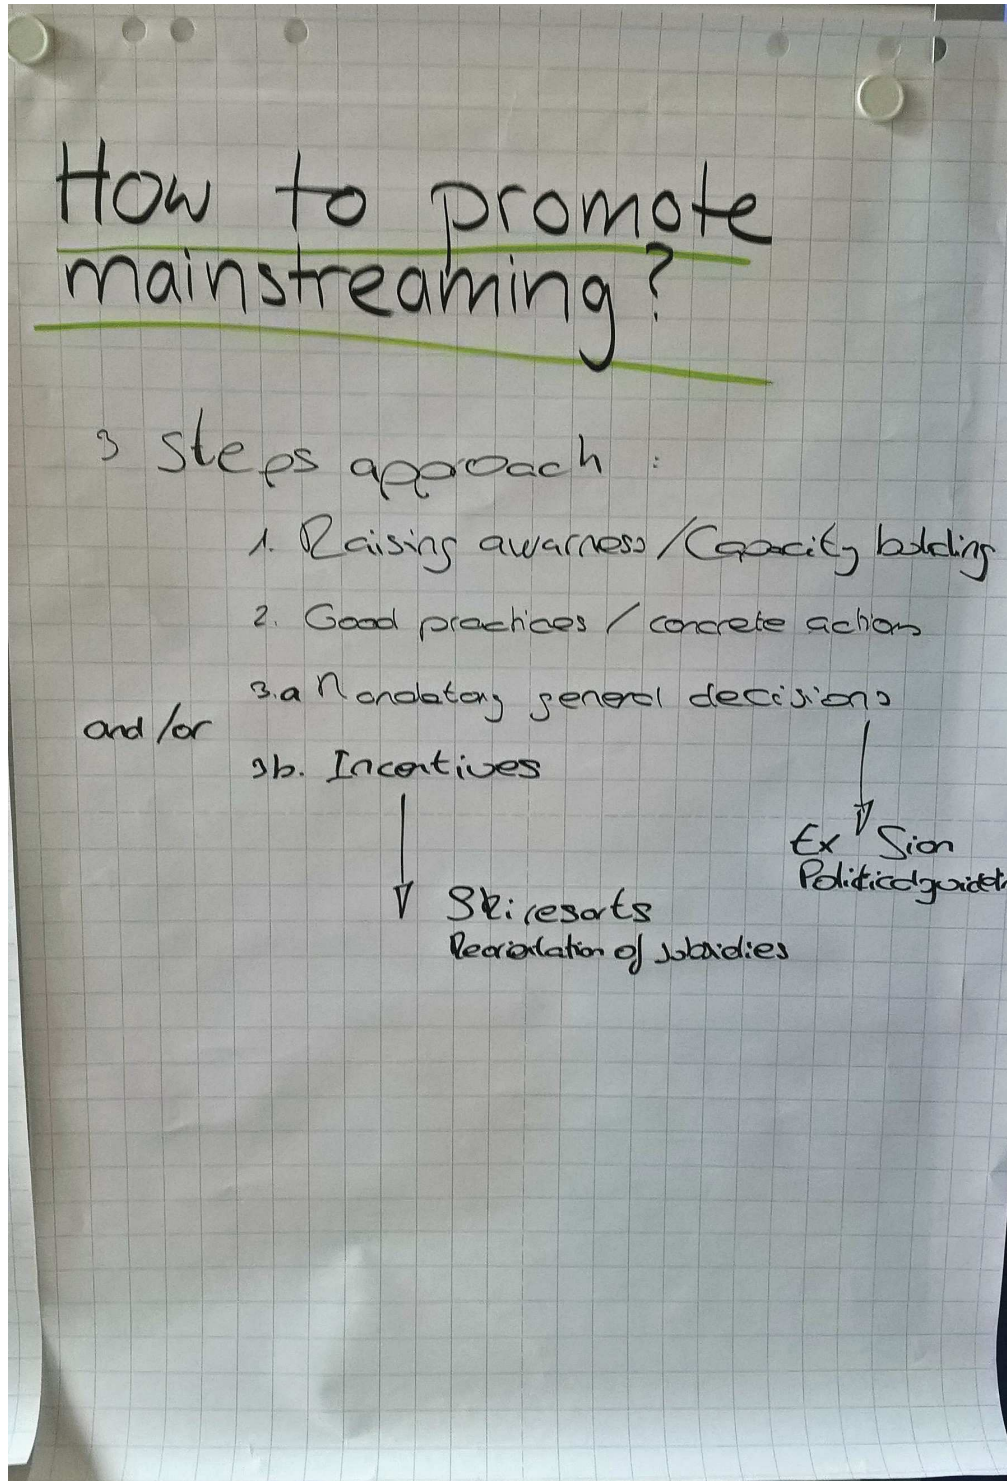 How to promote
mainstreaming?
3 steps approach :
1. Raising awarness / Capacity bolding
2. Good practices / concrete actions
3.a Mandatory general decisions
and/or
3b. Incentives
Ex Sion
Political
Ski resorts
of subsidies